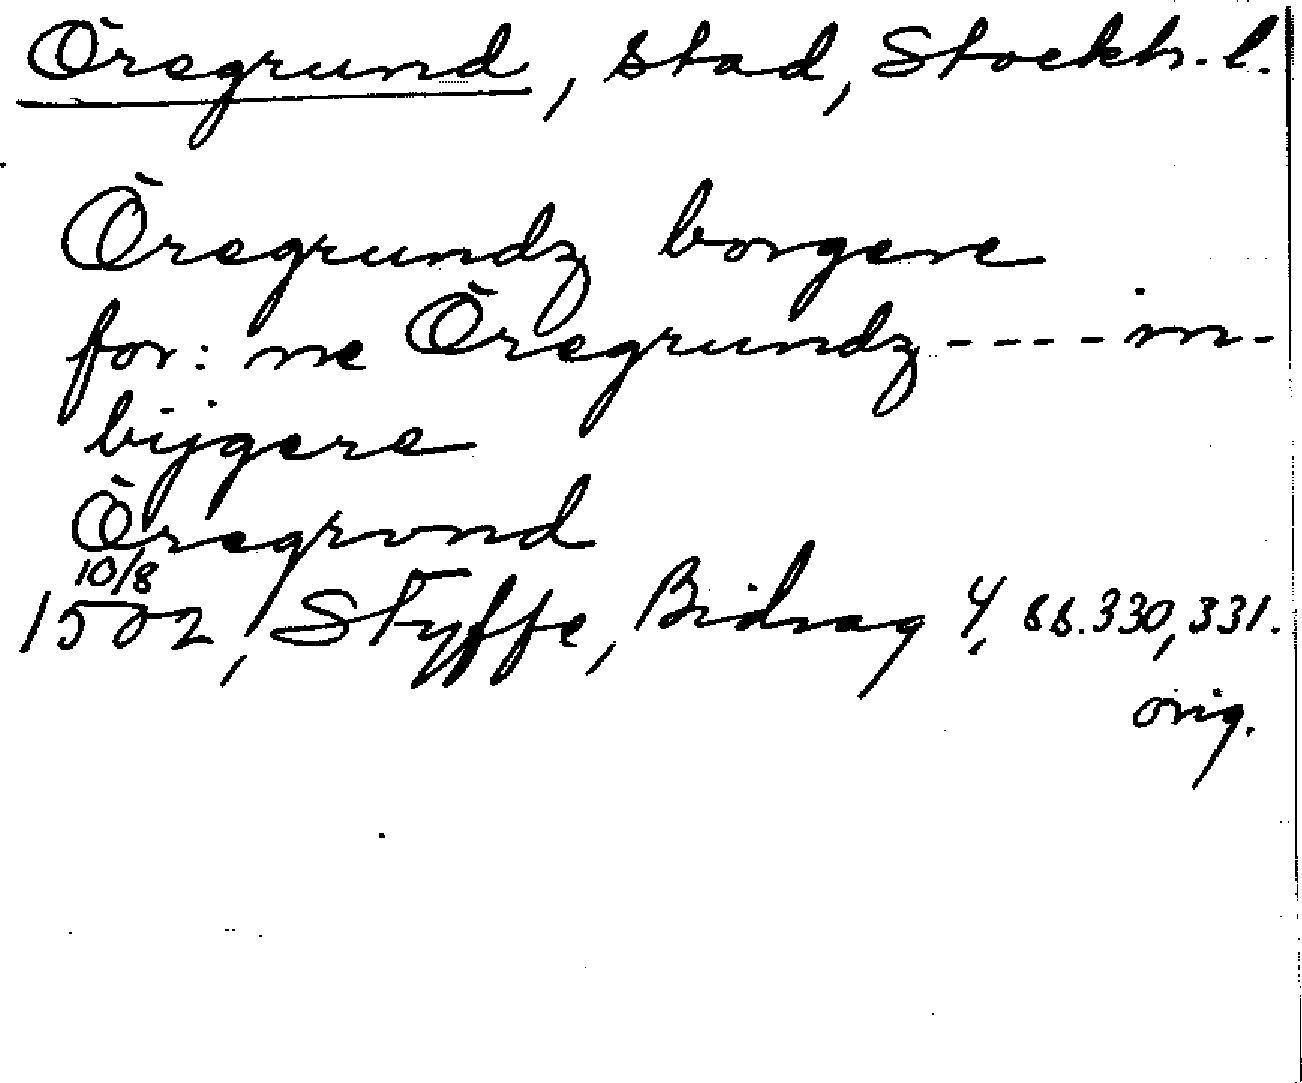 Öregrund, stad, Stockh. l.
Öregrundz borgere
for: ne Öregrundz - - - - in-
bijgere
Öregrvnd
10/8
1502, Styffe, Bidrag 4, ss. 330, 331.
orig.